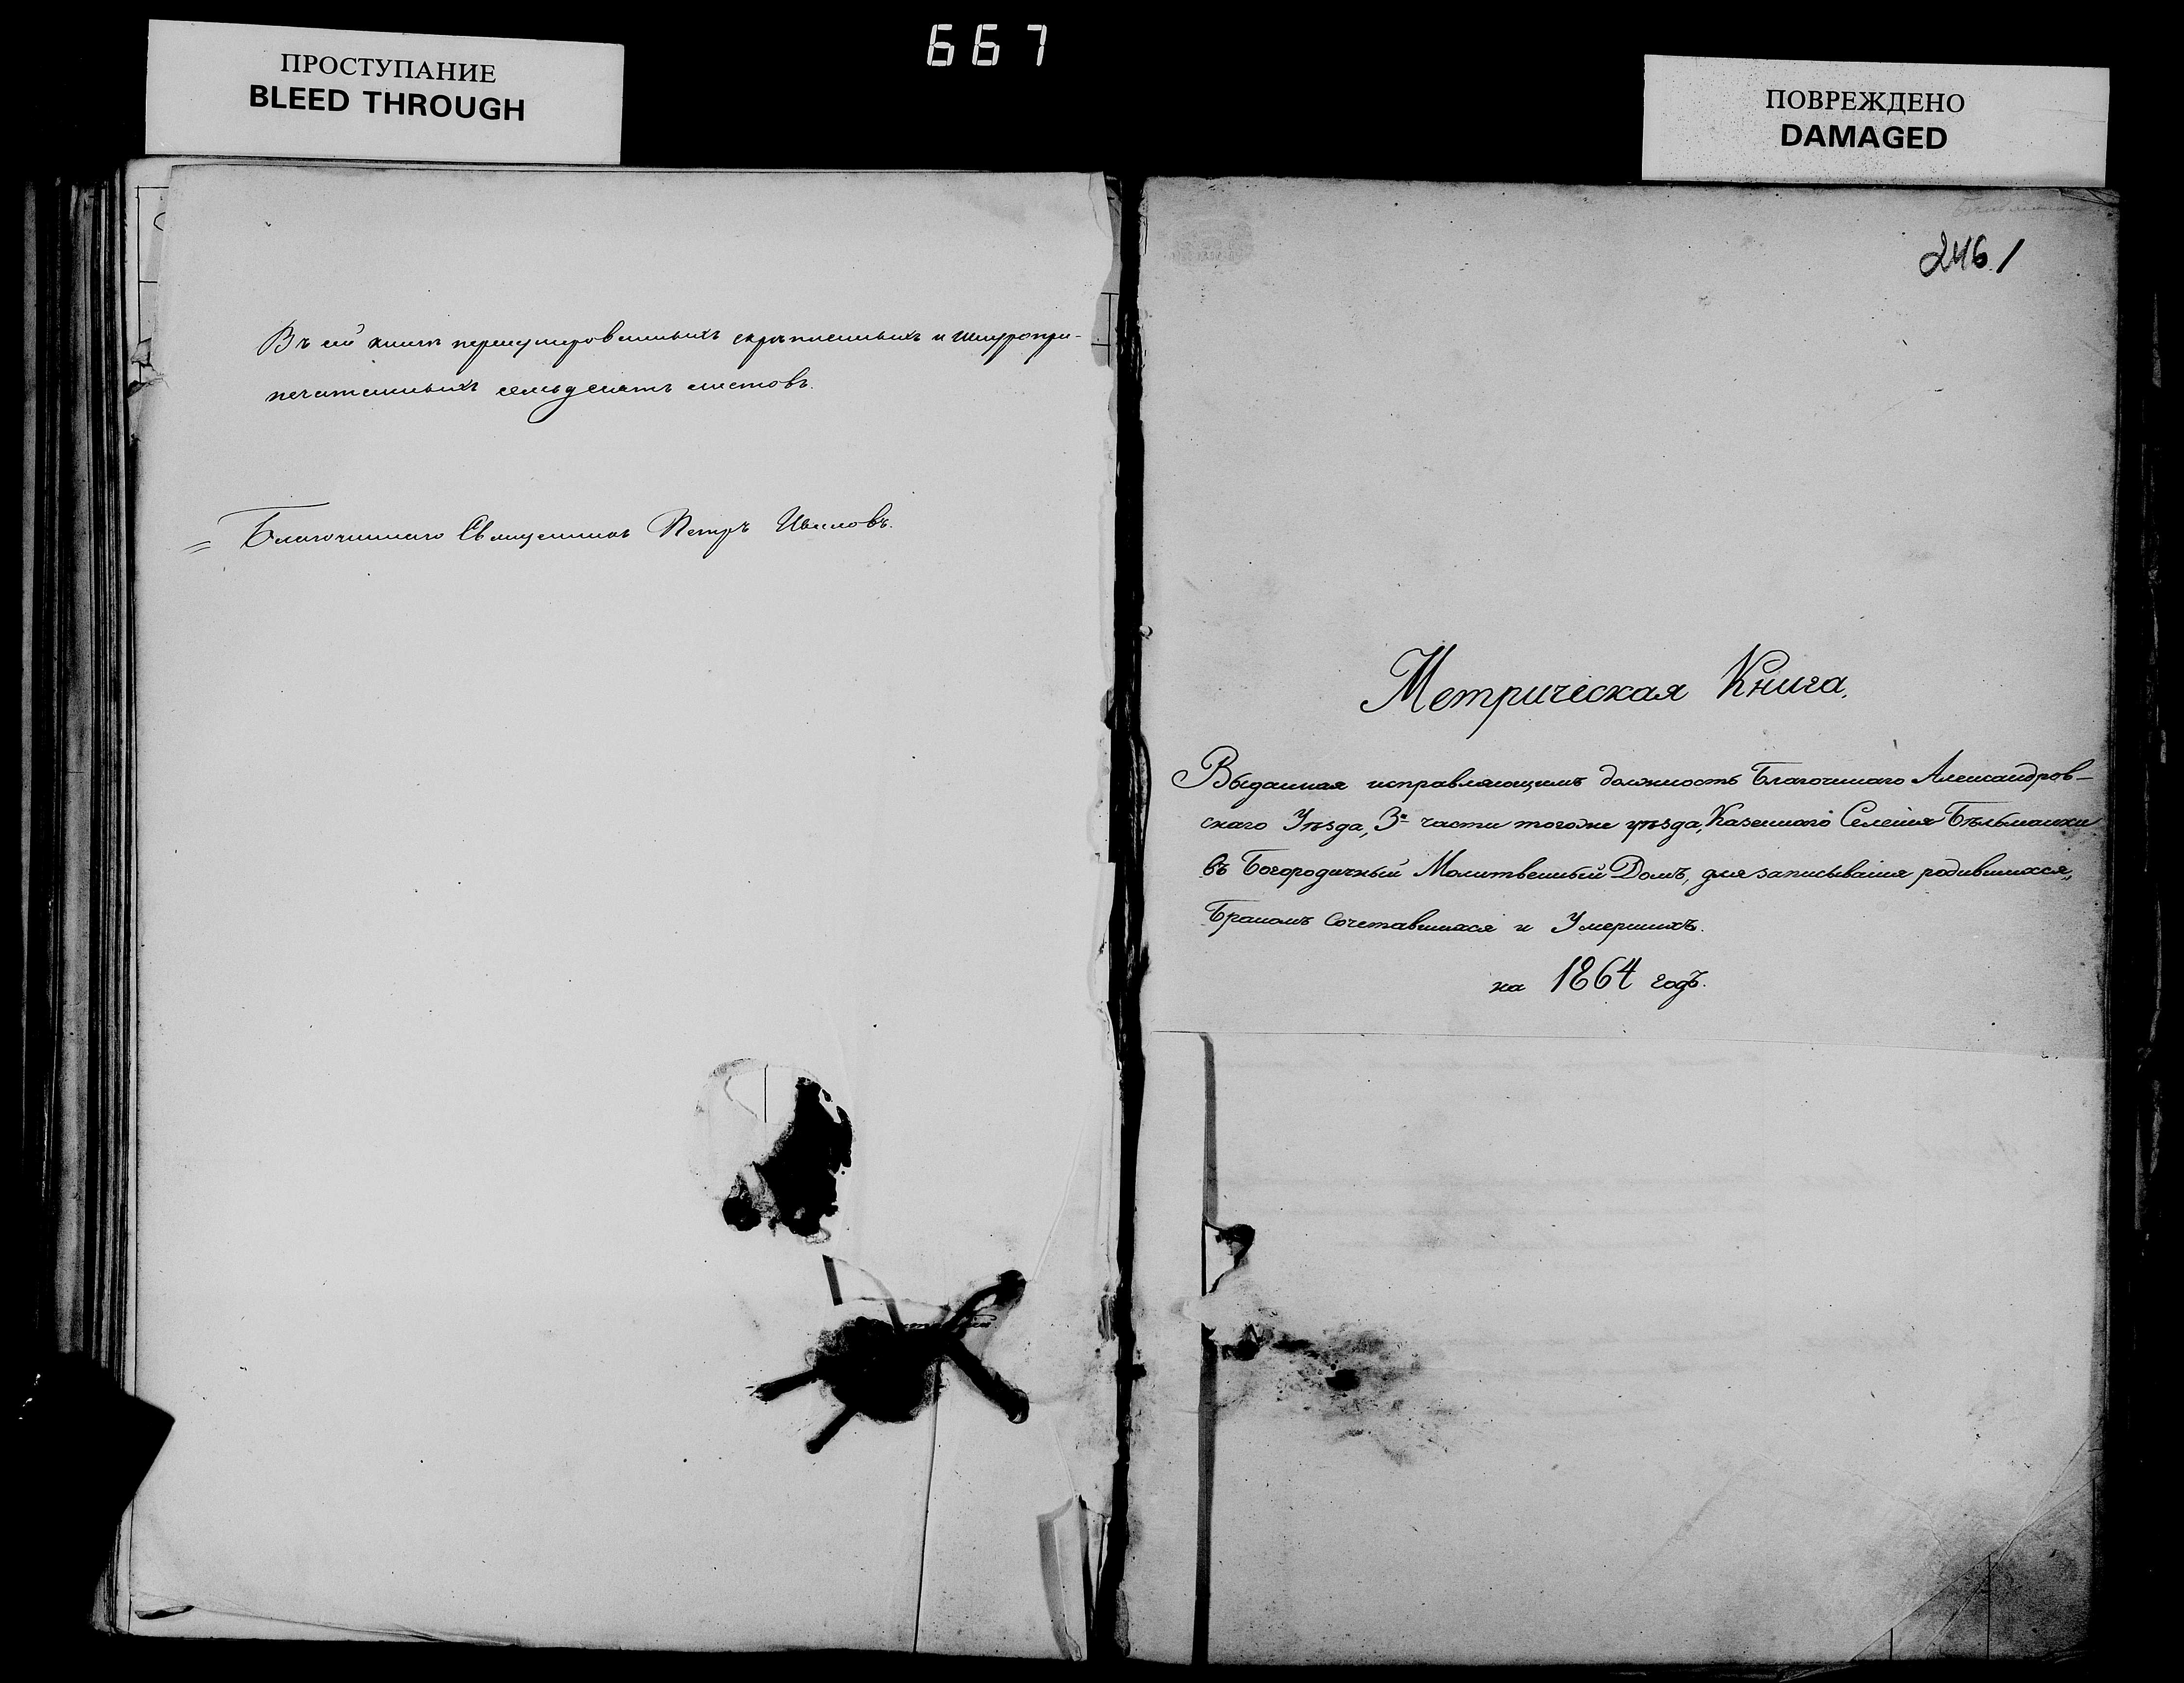 ПРОСТУПАНИЕ
BLEED THROUGH
667
ПОВРЕЖДЕНО
DAMAGED
Въ сей книгѣ перенумерованныхъ скрѣпленныхъ и шнуропри-
печатанныхъ семьдесятъ листовъ.
Благочиннаго Священникъ Петръ
246.1
Метрическая Книга.
Выданная исправляющимъ должность Благочиннаго Александров-
скаго Уѣзда, 3й части тогоже уѣзда, Казеннаго Селенія Бѣльманки
въ Богородичный Молитвенный Домъ, для записыванія родившихся,
Бракомъ Сочетавшихся и Умершихъ.
на 1864 годъ.